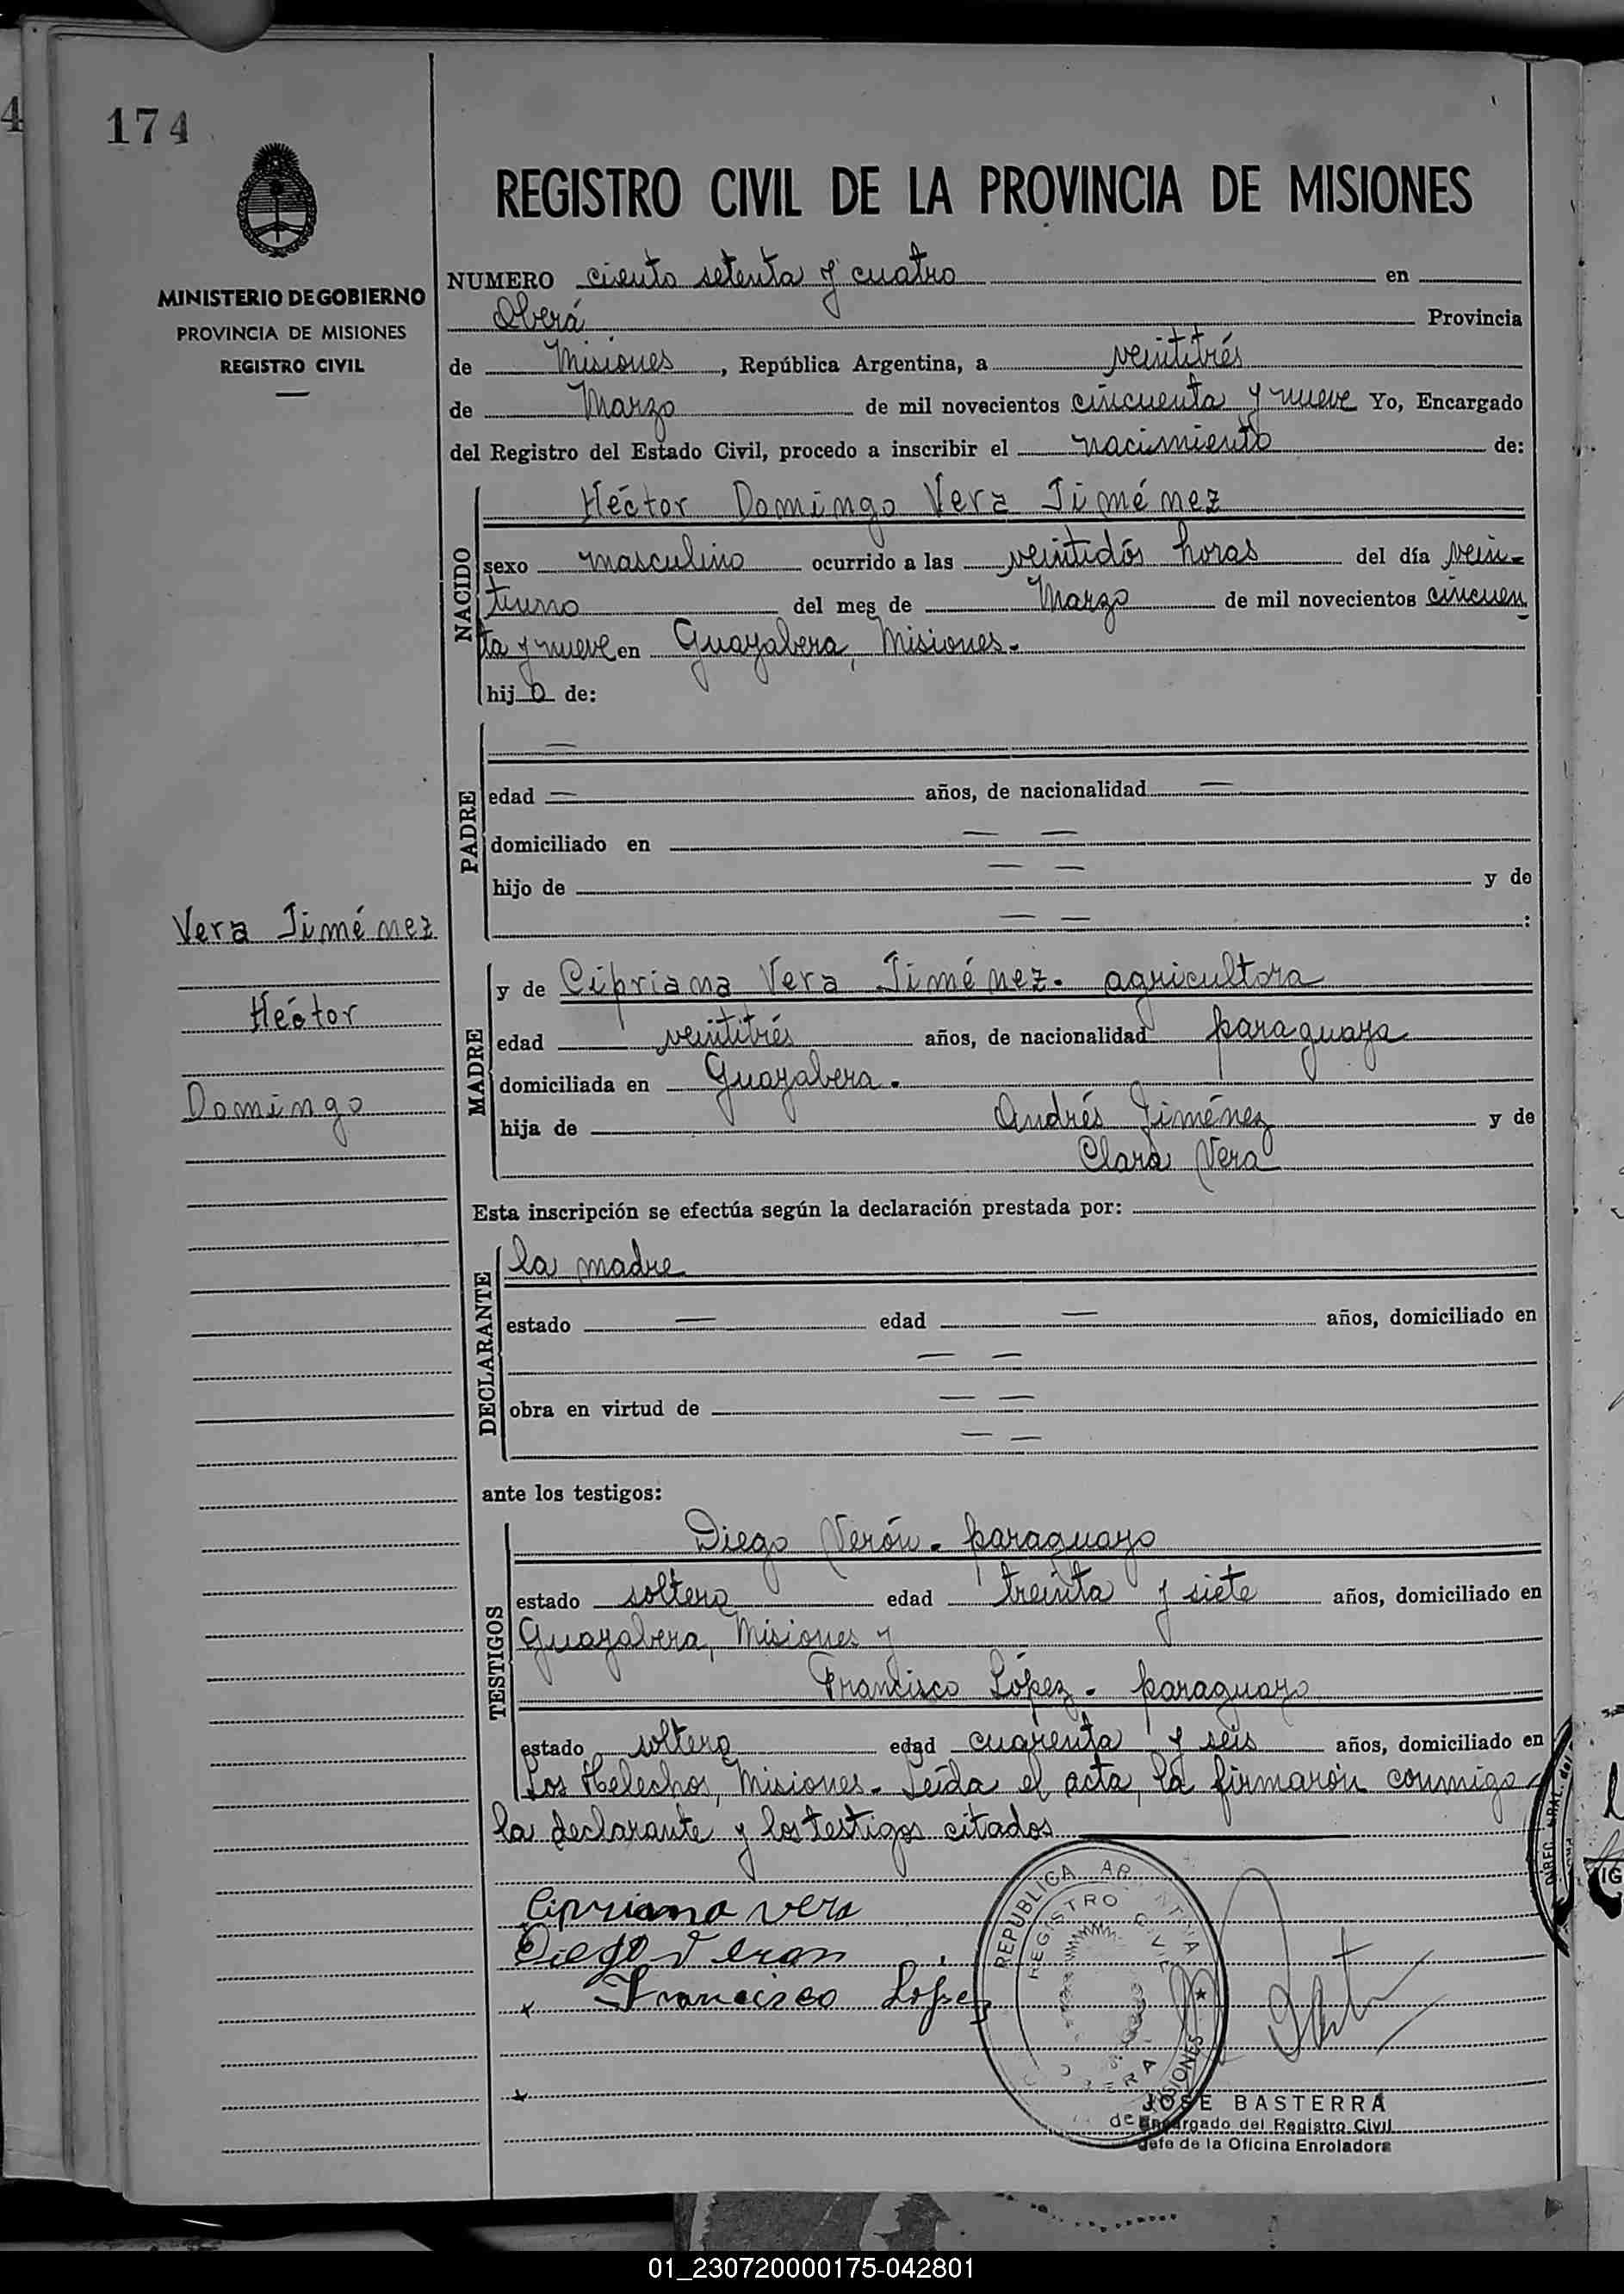 174
MINISTERIO DE GOBIERNO
PROVINCIA DE MISIONES
REGISTRO CIVIL
REGISTRO CIVIL DE LA PROVINCIA DE MISIONES
NUMERO ciento setenta y cuatro en
Oberá Provincia
de Misiones, República Argentina, a veintitrés
de Marzo de mil novecientos cincuenta y nueve Yo, Encargado
del Registro del Estado Civil, procedo a inscribir el nacimiento de:
NACIDO
Héctor Domingo Vera Jiménez
sexo masculino ocurrido a las veintidós horas del día vein-
tiuno del mes de Marzo de mil novecientos cincuen
ta y nueve en Guayabera, Misiones.
hijo de:
PADRE
—
edad — años, de nacionalidad —
domiciliado en — —
hijo de — — y de
— — :
Vera Jiménez
Héctor
Domingo
MADRE
y de Cipriana Vera Jiménez. agricultora
edad veintitrés años, de nacionalidad paraguaya
domiciliada en Guayabera.
hija de Andrés Jiménez y de
Clara Vera
Esta inscripción se efectúa según la declaración prestada por:
DECLARANTE
la madre
estado — edad — años, domiciliado en
— —
obra en virtud de — —
— —
ante los testigos:
TESTIGOS
Diego Verón. paraguayo
estado soltero edad treinta y siete años, domiciliado en
Guayabera, Misiones y
Francisco López. paraguayo
estado soltero edad cuarenta y seis años, domiciliado en
Los Helechos, Misiones. Leída el acta, la firmarón conmigo
la declarante y los testigos citados
Cipriana vera
Diego Veron
x Francisco López
x
REPUBLICA AR NTINA
REGISTRO CIVIL
MISIONES
JOSE BASTERRA
Encargado del Registro Civil
Jefe de la Oficina Enroladora
01_230720000175-042801